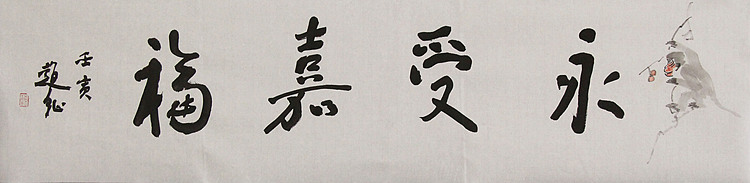 永受嘉福
壬寅